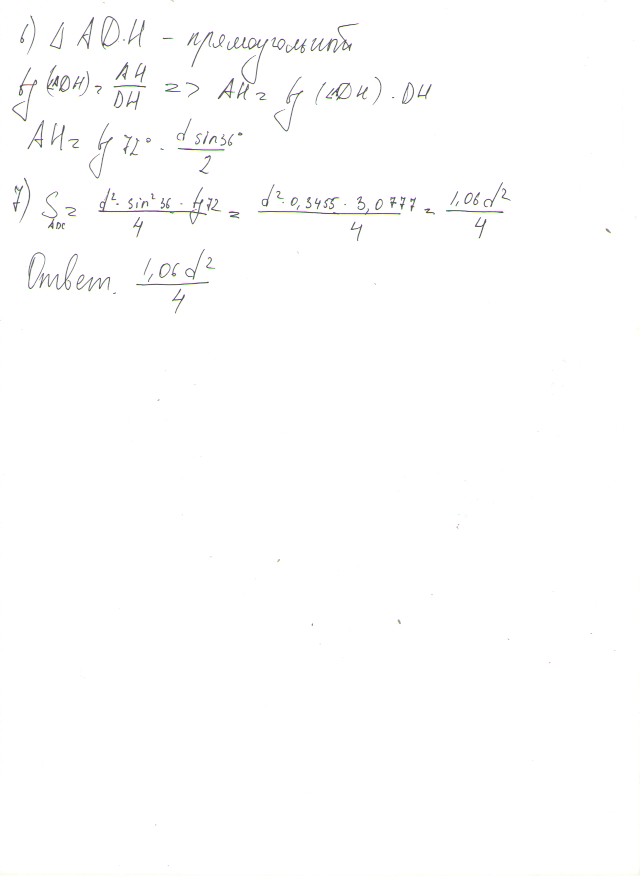 6) Δ ADH - прямоугольной
tg (∠ADH) = AH/DH => AH = tg (∠ADH) · DH
AH = tg 72° · d sin36°/2
7) S_ADC = d² · sin² 36 · tg 72/4 = d² · 0,3455 · 3,0777/4 = 1,06d²/4
Ответ. 1,06d²/4